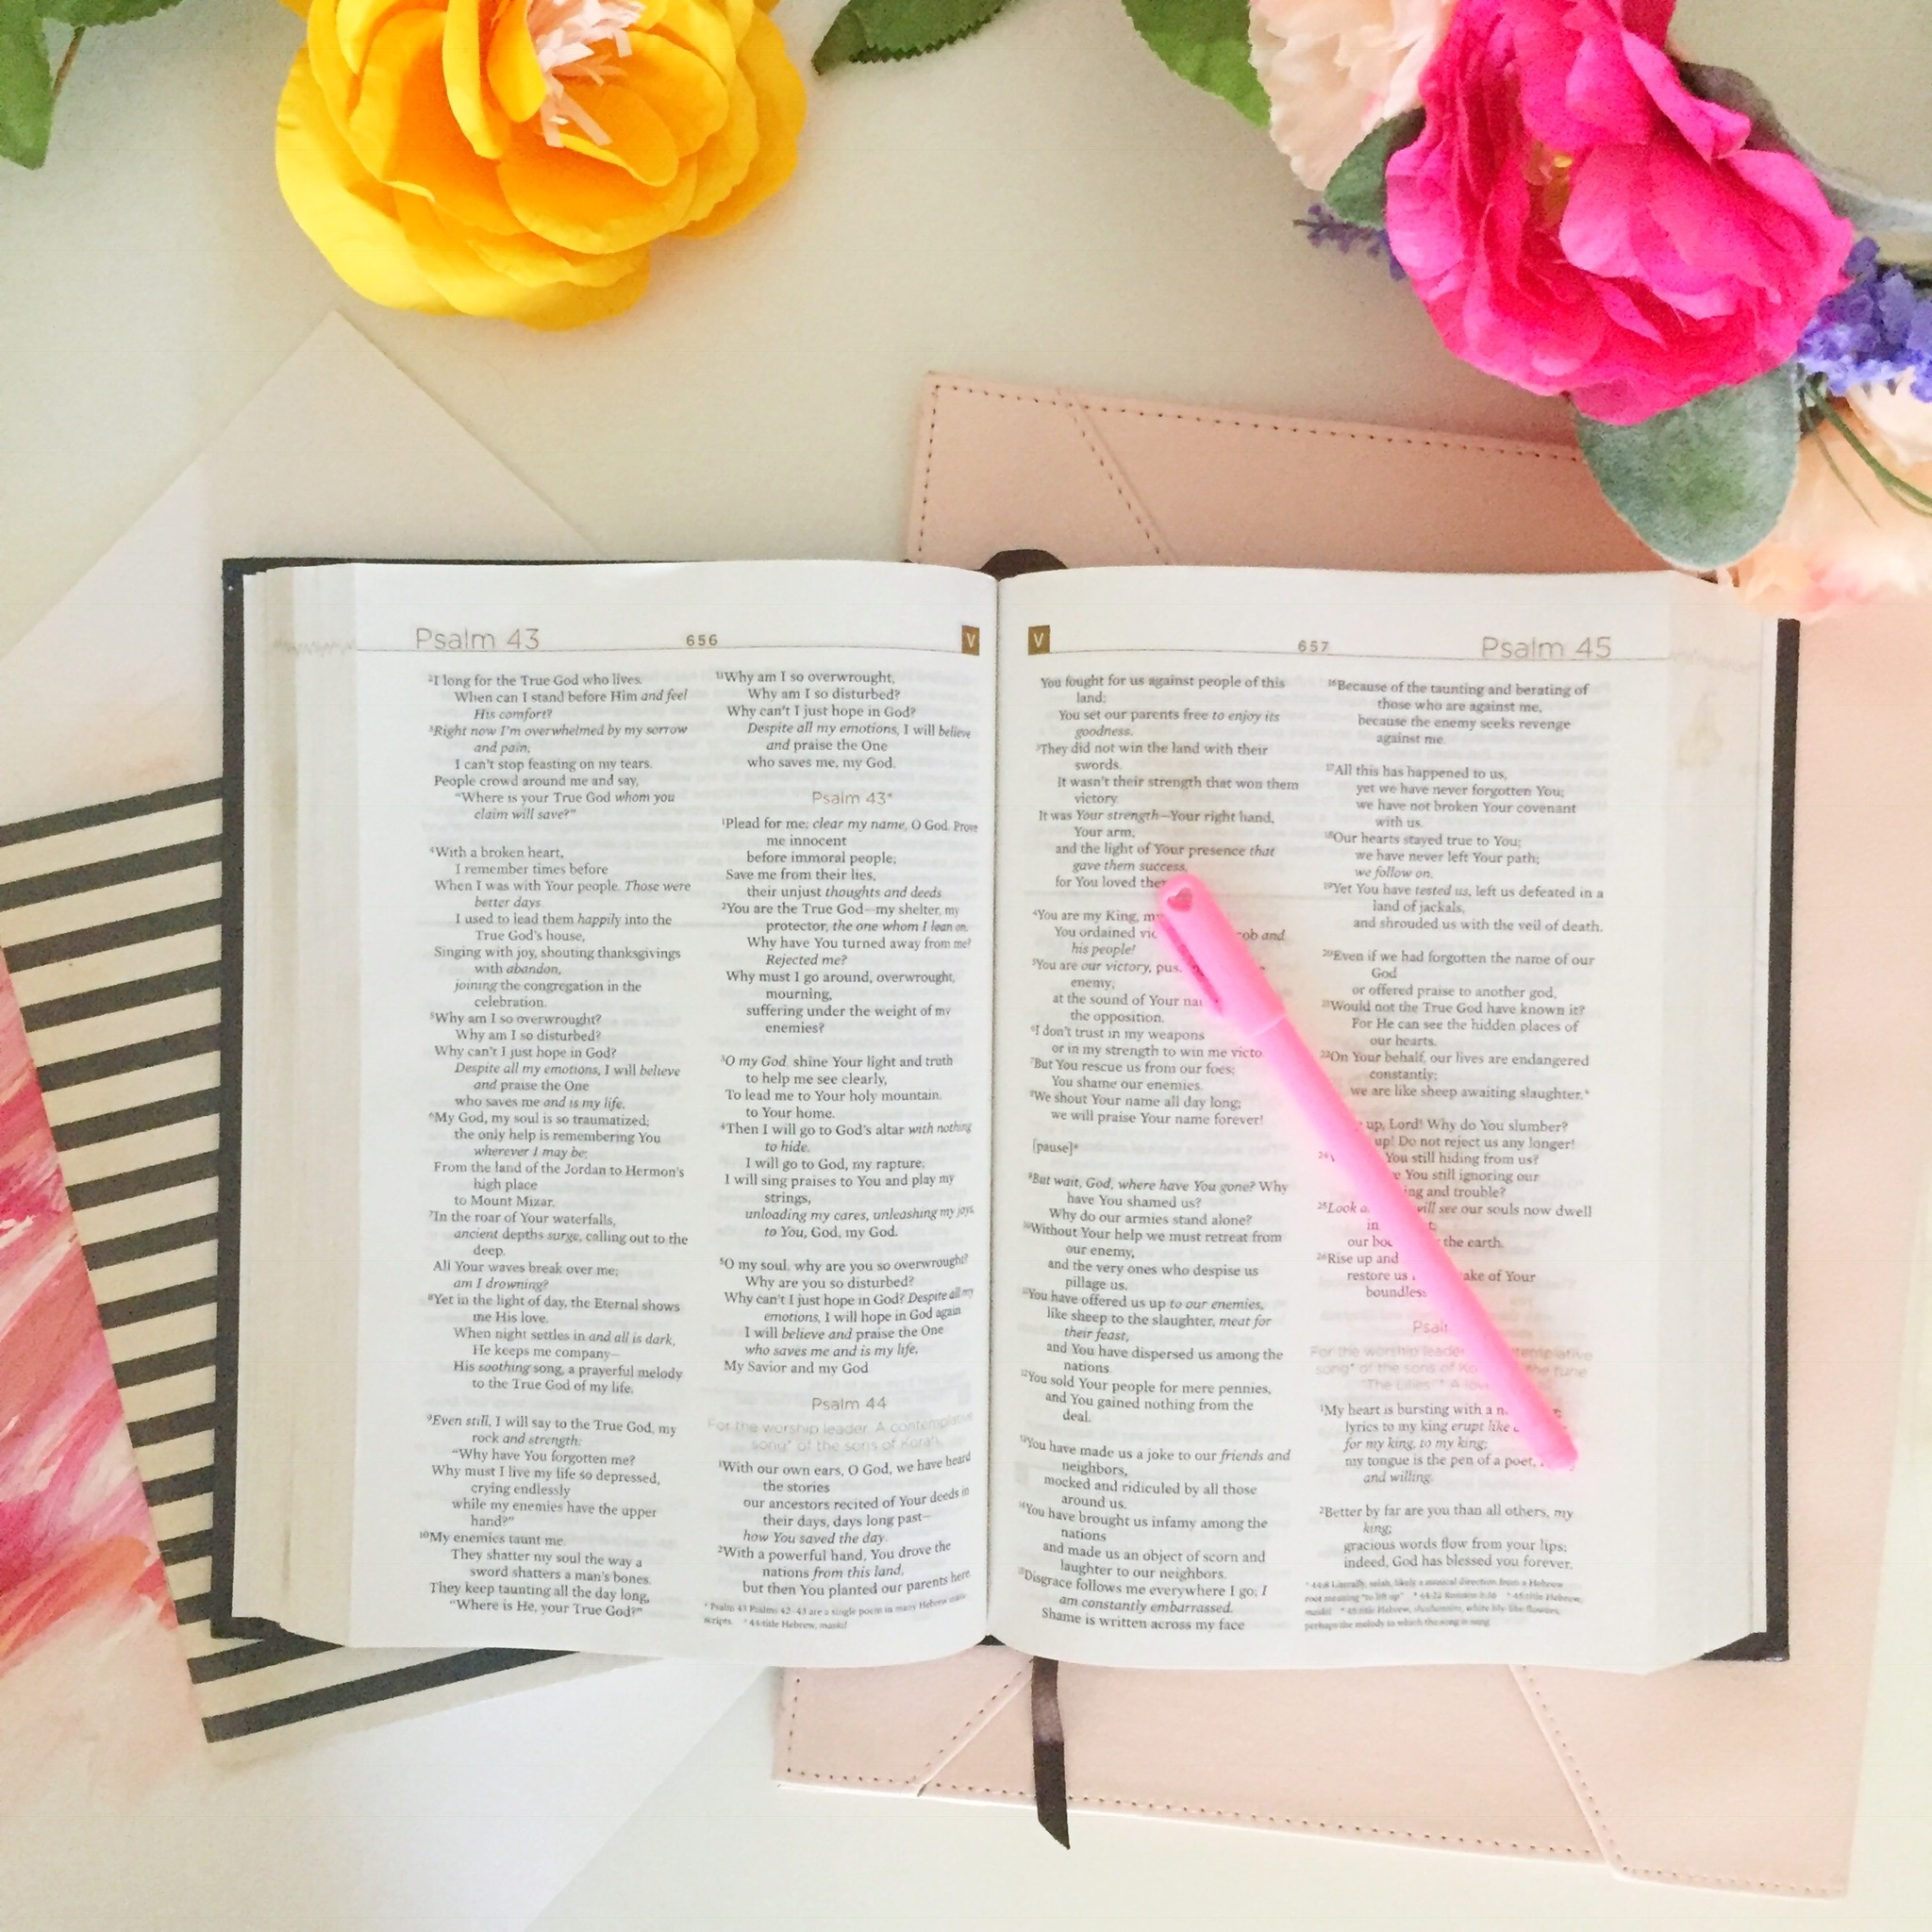 Psalm 43
656
V
²I long for the True God who lives.
When can I stand before Him and feel
His comfort?
³Right now I'm overwhelmed by my sorrow
and pain;
I can't stop feasting on my tears.
People crowd around me and say,
“Where is your True God whom you
claim will save?”
⁴With a broken heart,
I remember times before
When I was with Your people. Those were
better days.
I used to lead them happily into the
True God's house,
Singing with joy, shouting thanksgivings
with abandon,
joining the congregation in the
celebration.
⁵Why am I so overwrought?
Why am I so disturbed?
Why can't I just hope in God?
Despite all my emotions, I will believe
and praise the One
who saves me and is my life.
⁶My God, my soul is so traumatized;
the only help is remembering You
wherever I may be;
From the land of the Jordan to Hermon's
high place
to Mount Mizar.
⁷In the roar of Your waterfalls,
ancient depths surge, calling out to the
deep.
All Your waves break over me;
am I drowning?
⁸Yet in the light of day, the Eternal shows
me His love.
When night settles in and all is dark,
He keeps me company—
His soothing song, a prayerful melody
to the True God of my life.
⁹Even still, I will say to the True God, my
rock and strength:
“Why have You forgotten me?
Why must I live my life so depressed,
crying endlessly
while my enemies have the upper
hand?”
¹⁰My enemies taunt me.
They shatter my soul the way a
sword shatters a man's bones.
They keep taunting all the day long,
“Where is He, your True God?”
¹¹Why am I so overwrought,
Why am I so disturbed?
Why can't I just hope in God?
Despite all my emotions, I will believe
and praise the One
who saves me, my God.
Psalm 43*
¹Plead for me; clear my name, O God. Prove
me innocent
before immoral people;
Save me from their lies,
their unjust thoughts and deeds
²You are the True God—my shelter, my
protector, the one whom I lean on.
Why have You turned away from me?
Rejected me?
Why must I go around, overwrought,
mourning,
suffering under the weight of my
enemies?
³O my God, shine Your light and truth
to help me see clearly,
To lead me to Your holy mountain,
to Your home.
⁴Then I will go to God's altar with nothing
to hide.
I will go to God, my rapture;
I will sing praises to You and play my
strings,
unloading my cares, unleashing my joys,
to You, God, my God.
⁵O my soul, why are you so overwrought?
Why are you so disturbed?
Why can't I just hope in God? Despite all my
emotions, I will hope in God again
I will believe and praise the One
who saves me and is my life,
My Savior and my God.
Psalm 44
For the worship leader. A contemplative
song* of the sons of Korah.
¹With our own ears, O God, we have heard
the stories
our ancestors recited of Your deeds in
their days, days long past—
how You saved the day.
²With a powerful hand, You drove the
nations from this land,
but then You planted our parents here
* Psalm 43 Psalms 42–43 are a single poem in many Hebrew manu-
scripts. * 44:title Hebrew, maskil
V
657
Psalm 45
You fought for us against people of this
land;
You set our parents free to enjoy its
goodness.
³They did not win the land with their
swords.
It wasn't their strength that won them
victory.
It was Your strength—Your right hand,
Your arm,
and the light of Your presence that
gave them success,
for You loved
⁴You are my King,
You ordained ob and
his people!
⁵You are our victory,
enemy,
at the sound of Your
the opposition.
⁶I don't trust in my weapons
or in my strength to win me
⁷But You rescue us from our foes;
You shame our enemies.
⁸We shout Your name all day long;
we will praise Your name forever!
[pause]*
⁹But wait, God, where have You gone? Why
have You shamed us?
Why do our armies stand alone?
¹⁰Without Your help we must retreat from
our enemy,
and the very ones who despise us
pillage us.
¹¹You have offered us up to our enemies,
like sheep to the slaughter, meat for
their feast,
and You have dispersed us among the
nations.
¹²You sold Your people for mere pennies,
and You gained nothing from the
deal.
¹³You have made us a joke to our friends and
neighbors,
mocked and ridiculed by all those
around us.
¹⁴You have brought us infamy among the
nations
and made us an object of scorn and
laughter to our neighbors.
¹⁵Disgrace follows me everywhere I go; I
am constantly embarrassed.
Shame is written across my face
¹⁶Because of the taunting and berating of
those who are against me,
because the enemy seeks revenge
against me.
¹⁷All this has happened to us,
yet we have never forgotten You;
we have not broken Your covenant
with us.
¹⁸Our hearts stayed true to You;
we have never left Your path;
we follow on.
¹⁹Yet You have tested us, left us defeated in a
land of jackals,
and shrouded us with the veil of death.
²⁰Even if we had forgotten the name of our
God
or offered praise to another god,
²¹Would not the True God have known it?
For He can see the hidden places of
our hearts.
²²On Your behalf, our lives are endangered
constantly;
we are like sheep awaiting slaughter.*
up, Lord! Why do You slumber?
up! Do not reject us any longer!
²⁴ You still hiding from us?
You still ignoring our
and trouble?
²⁵Look see our souls now dwell
in
our the earth.
²⁶Rise up and
restore us of Your
boundless
For the worship leader
song* of the sons of the tune
“The Lilies”* A
¹My heart is bursting with a
lyrics to my king erupt like
for my king, to my king;
my tongue is the pen of a poet,
and willing.
²Better by far are you than all others, my
king;
gracious words flow from your lips;
indeed, God has blessed you forever.
* 44:8 Literally, selah, likely a musical direction from a Hebrew
root meaning “to lift up” * 44:22 Romans 8:36 * 45:title Hebrew,
maskil * 45:title Hebrew, shoshannim, white lily-like flowers,
perhaps the melody to which the song is sung